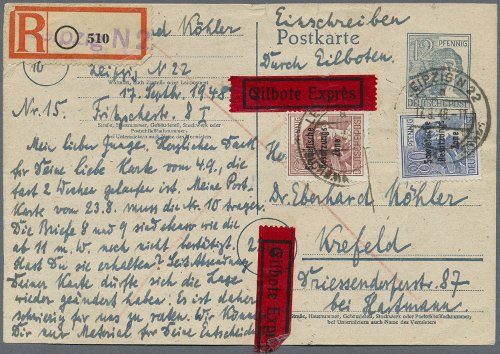 R
510
Leipzig N 22
Köhler
Leipzig N 22
17. Sept. 1948
Nr. 15. Fritzschestr. 8 I
Mein lieber Junge. Herzlichen Dank
für Deine liebe Karte vom 4.9., die
fast 2 Wochen gelaufen ist. Meine Post-
Karte vom 23.8. muss die Nr. 10 tragen.
Die Briefe 8 und 9 sind ebenso wie die
ab 11 m. W. noch nicht bestätigt.
Hast Du sie erhalten? Seit Absendung
Deiner Karte dürfte sich die Lage
wieder geändert haben. Es ist daher
schwierig für uns zu raten. Wir können
Dir nur Material für Deine Entscheid
Einschreiben
Postkarte
Durch Eilboten.
Eilbote Exprès
12 PFENNIG
DEUTSCHE POST
LEIPZIG N 22
Sowjetische
Besatzungs
Zone
80 PFENNIG
Dr. Eberhard Köhler
Krefeld
Driessendorferstr. 87
bei Hartmann
Eilbote Exprès
Straße, Hausnummer, Gebäudeteil, Stockwerk oder Postschließfachnummer,
bei Untermietern auch Name des Vermieters